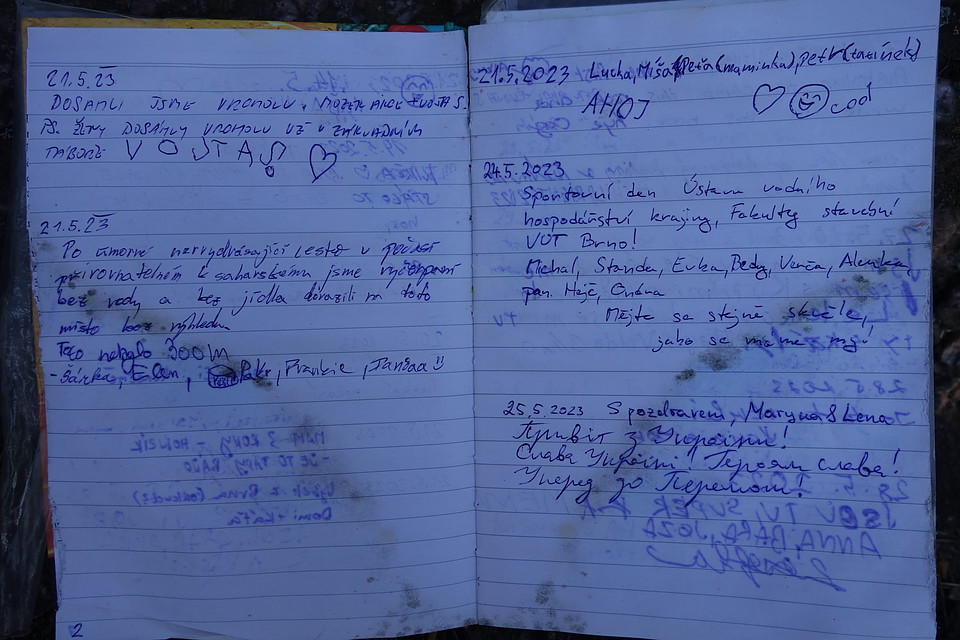 21.5.23
DOSAHLI JSME VRCHOLU, MŮŽETE AHOJ S.
PS. ŽENY DOSÁHLY VRCHOLU UŽ V ZÁKLADNÍM
TÁBOŘE VOJTA
21.5.23
Po úmorné nervydrásající cestě v
přirovnatelném k saharskému jsme vyčerpaní
bez vody a bez jídla dorazili na toto
místo bez výhledu
Toto nebylo 300m
- Šárka, Elen, Frankie,
2
21.5.2023 Lucka, Míša, Péťa (maminka), Petr (tatínek)
AHOJ
cool
24.5.2023
Sportovní den Ústavu vodního
hospodářství krajiny, Fakulty stavební
VUT Brno!
Michal, Standa, Evka, Venča, Alenka,
pan
Mějte se stejně skvěle,
jako se máme my!
25.5.2023 S pozdravem, Maryna & Lena
Привіт з України!
Слава Україні! Героям слава!
Уперед до Перемоги!